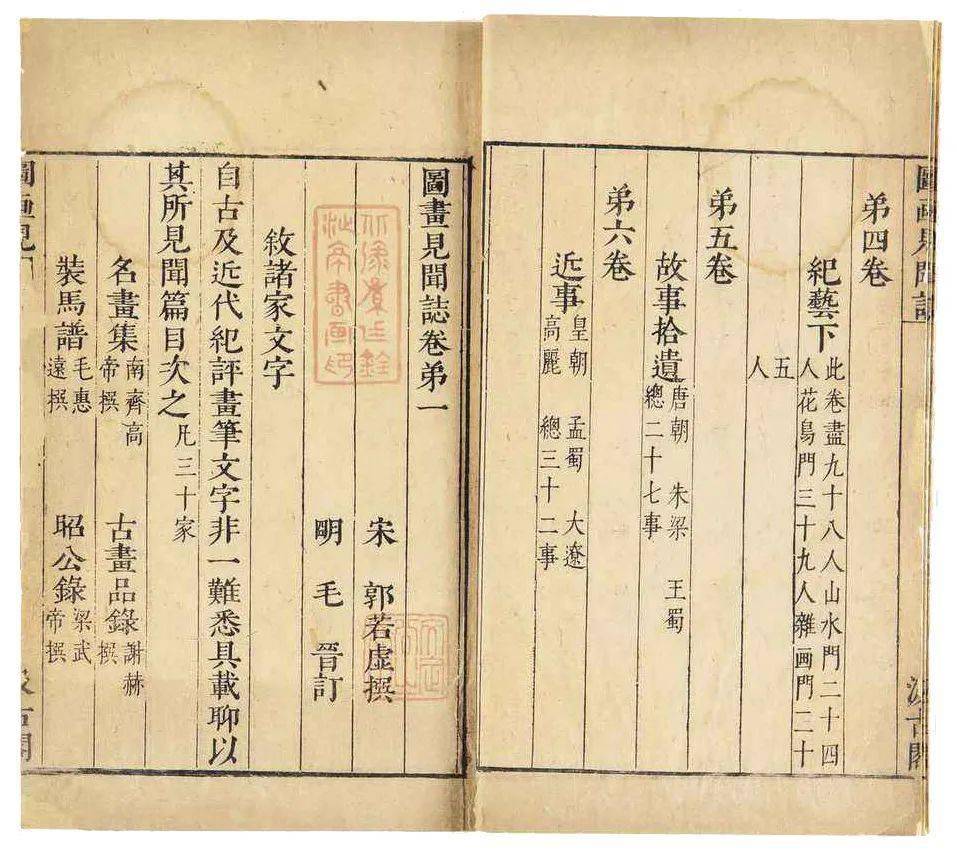 圖画見聞誌 汲古閣
弟四卷
紀藝下 此卷盡九十八人山水門二十四
人花鳥門三十九人雜画門二十
五
人
弟五卷
故事拾遺 唐朝 朱梁 王蜀
總二十七事
弟六卷
近事 皇朝 孟蜀 大遼
高麗 總三十二事
圖畫見聞誌卷弟一
宋 郭若虛撰
明 毛晉訂
敘諸家文字
自古及近代紀評畫筆文字非一難悉具載聊以
其所見聞篇目次之 凡三十家
名畫集 南齊高帝撰 古畫品錄 謝赫撰
裝馬譜 毛惠遠撰 昭公錄 梁武帝撰
圖画見 汲古閣